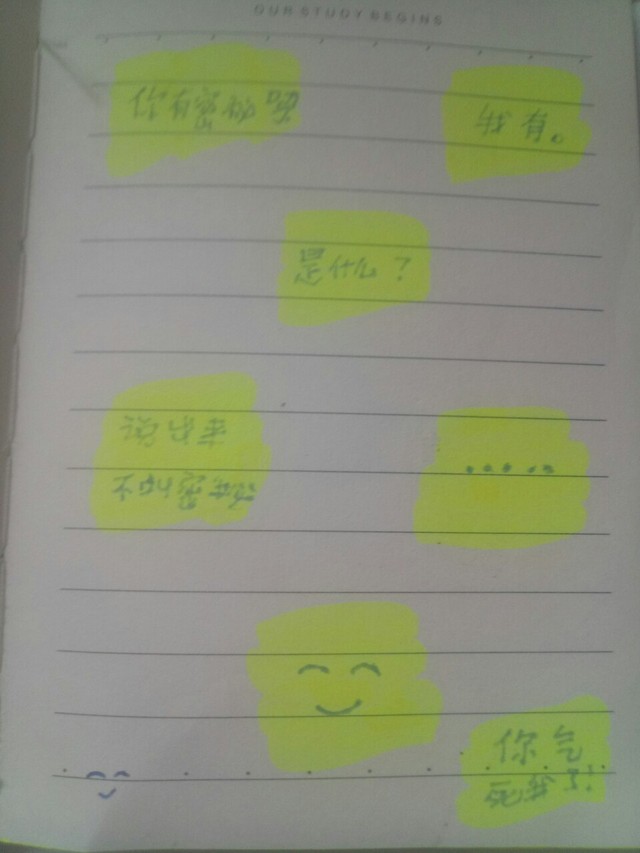 OUR STUDY BEGINS
你有密秘吗
我有。
是什么？
说出来
不叫密秘
......
你气
死我了!